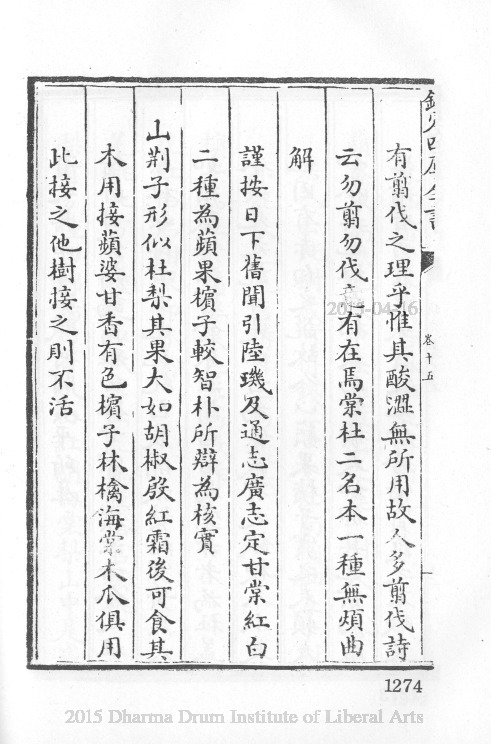 欽定四庫全書
卷十五
有翦伐之理乎惟其酸澀無所用故人多翦伐詩
云勿翦勿伐意有在焉棠杜二名本一種無煩曲
解
謹按日下舊聞引陸璣及通志廣志定甘棠紅白
二種為蘋果檳子較智朴所辯為核實
山荆子形似杜梨其果大如胡椒殷紅霜後可食其
木用接蘋婆甘香有色檳子林檎海棠木瓜俱用
此接之他樹接之則不活
1274
2015 Dharma Drum Institute of Liberal Arts